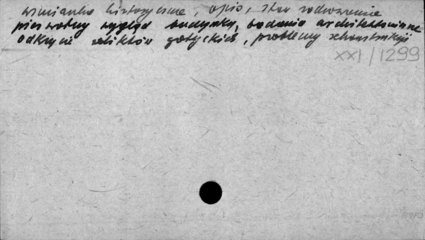 wzmianka historyczna, opis, stan zachowania
pierwotny wygląd budynku, badania architektoniczne
odkrycie reliktów gotyckich, problemy
XXI/1299